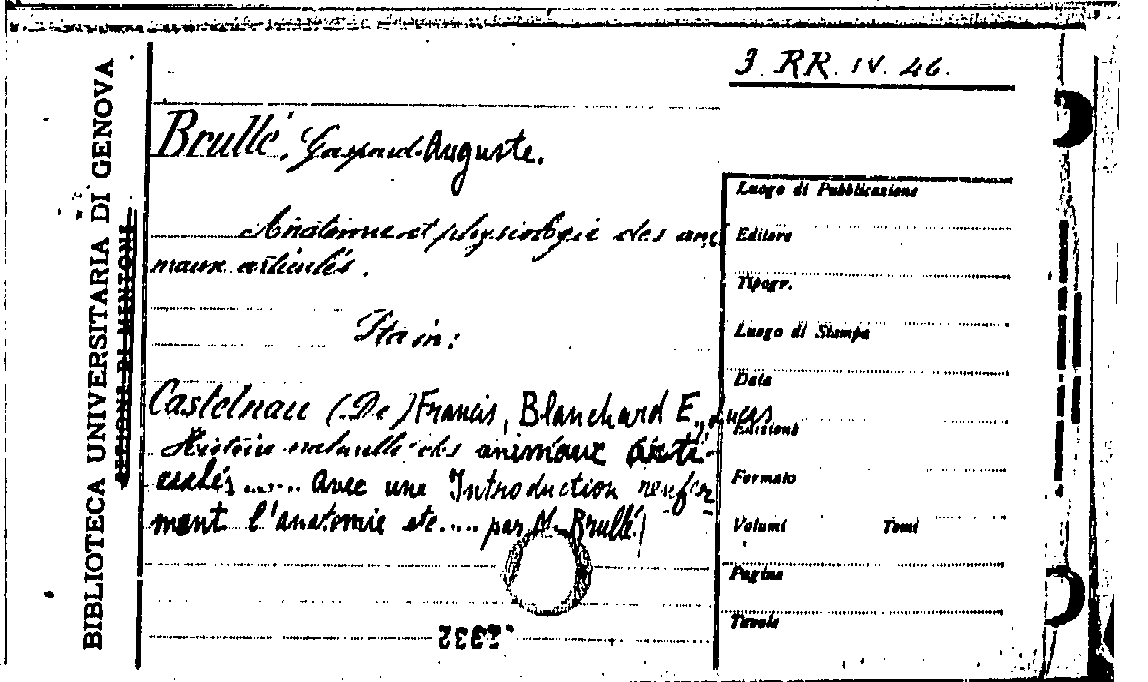 3. RR. IV. 46.
BIBLIOTECA UNIVERSITARIA DI GENOVA
SEZIONE DI MENTONE
Brullé, Gaspard-Auguste.
Anatomie et physiologie des ani
maux articulés.
Sta in:
Castelnau (De) Francis, Blanchard E., Lucas
Histoire naturelle des animaux arti-
culés...... avec une Introduction renfer
mant l'anatomie etc.... par M. Brullé
2332
Luogo di Pubblicazione
Editore
Tipogr.
Luogo di Stampa
Data
Edizione
Formato
Volumi Tomi
Pagine
Tavole